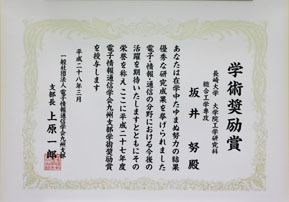 学術奨励賞
長崎大学 大学院工学研究科
総合工学専攻
坂井 努 殿
あなたは在学中たゆまぬ努力の結果
優秀な研究成果を挙げられました
電子・情報・通信の分野における今後の
活躍を期待いたしますとともにその
栄誉を称え、ここに平成二十七年度
電子情報通信学会九州支部学術奨励賞
を授与します
平成二十八年三月
一般社団法人電子情報通信学会九州支部
支部長 上原一郎